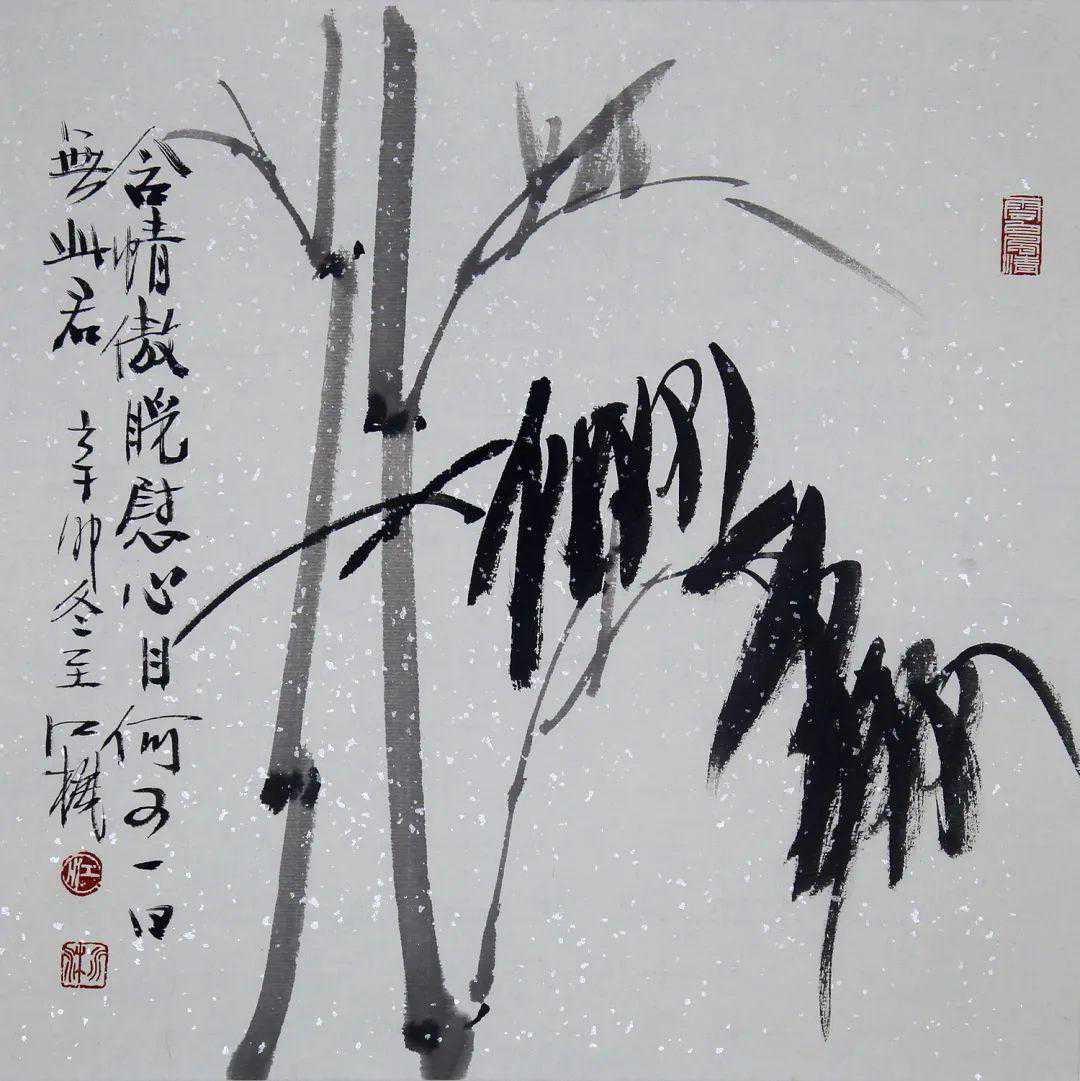 含情傲睨慰心目何可一日
無此君 辛卯冬至 江楓